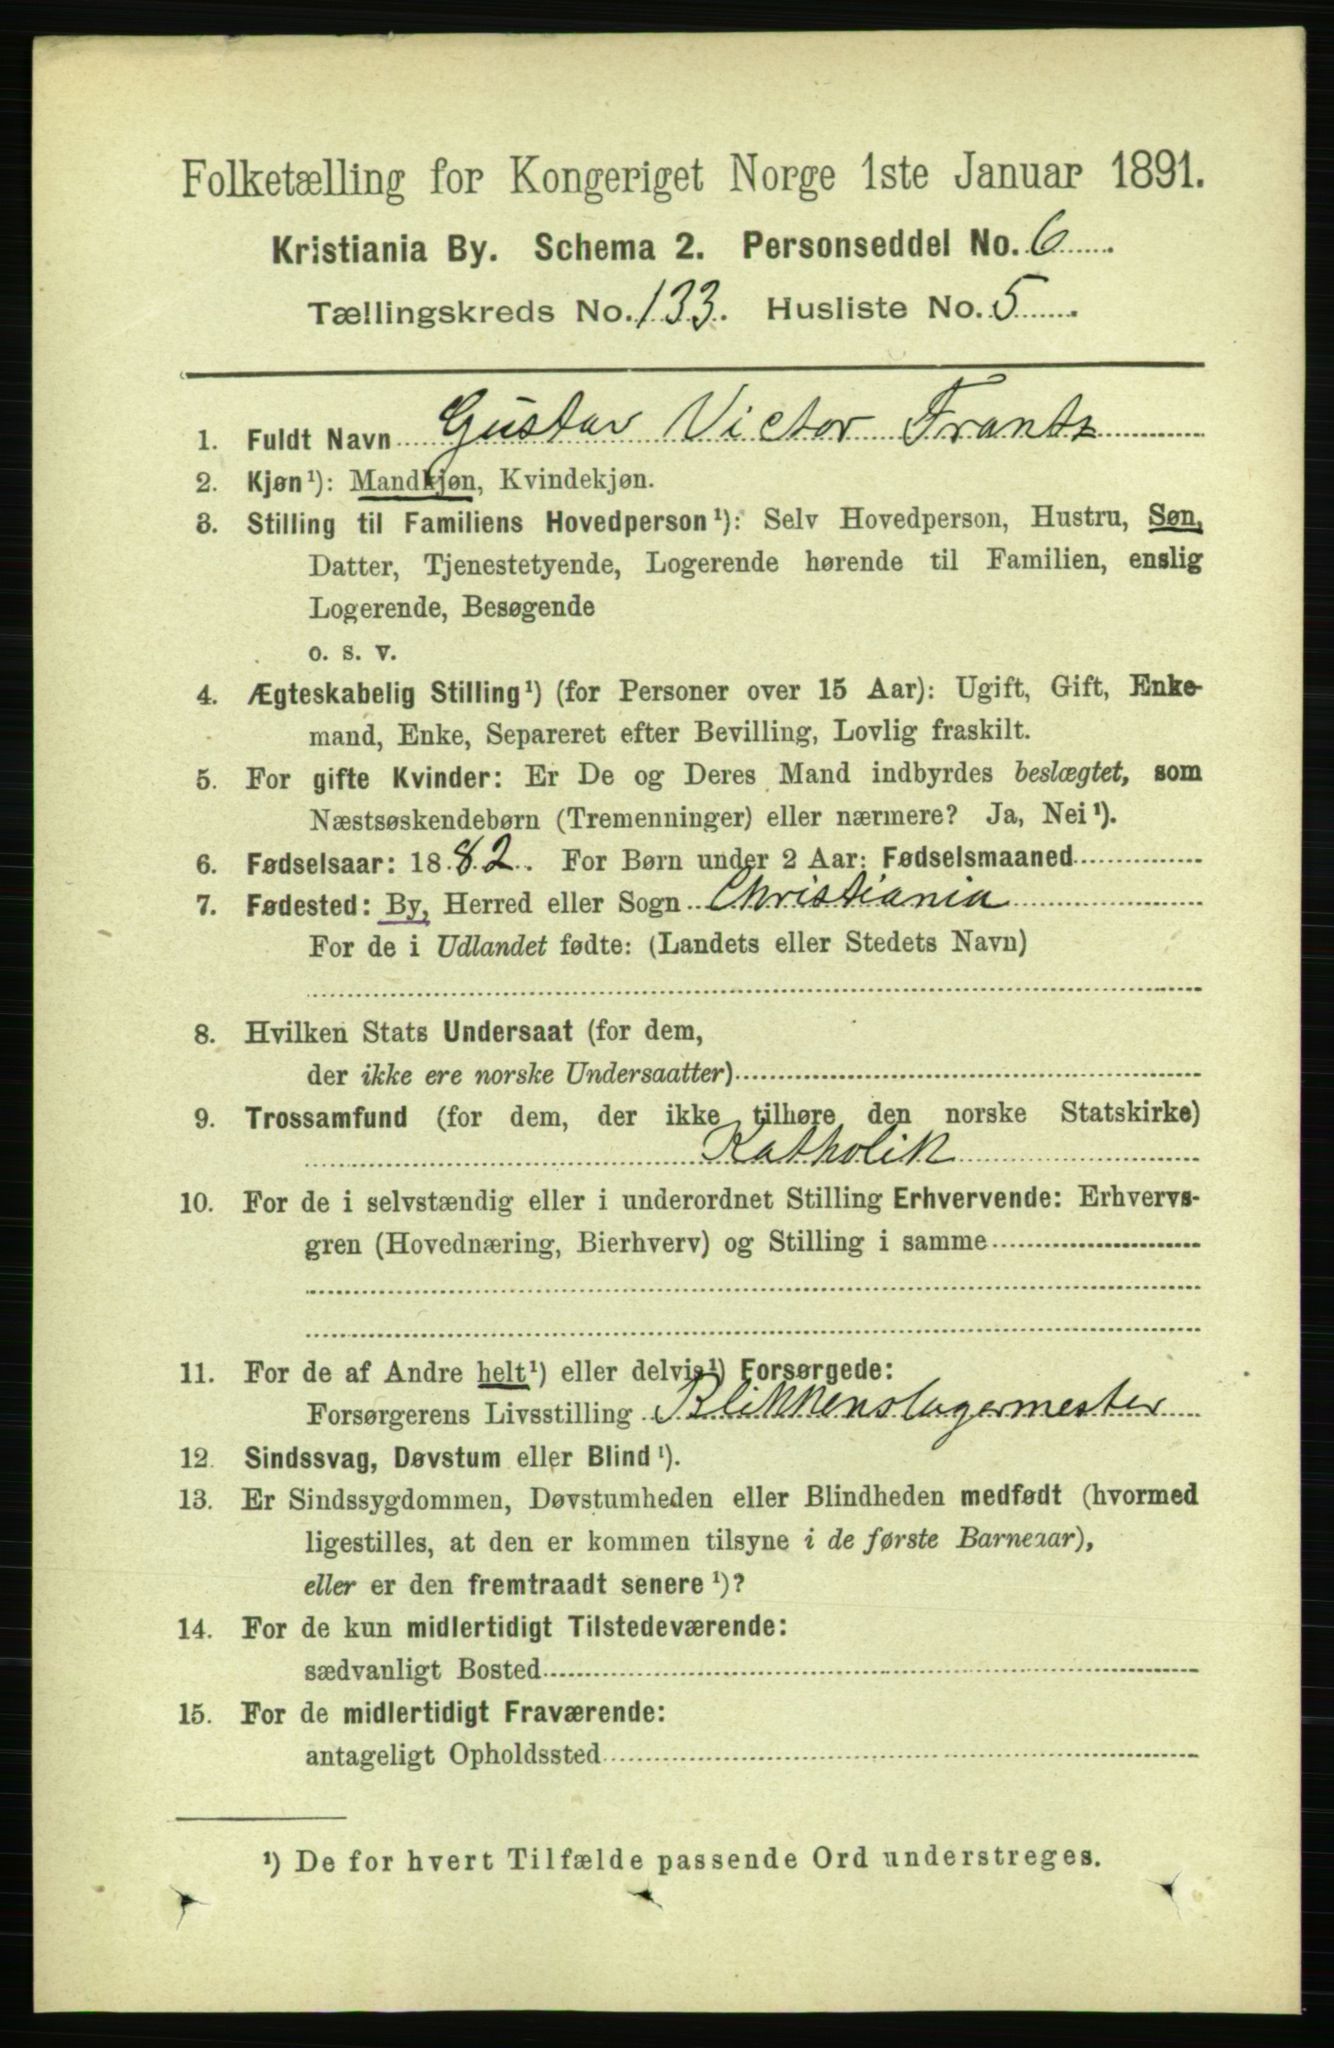 Folketælling for Kongeriget Norge 1ste Januar 1891.
Kristiania By. Schema 2. Personseddel No. 6
Tællingskreds No. 133. Husliste No. 5
1. Fuldt Navn Gustav Victor Frantz
2. Kjøn¹): Mandkjøn, Kvindekjøn.
3. Stilling til Familiens Hovedperson¹): Selv Hovedperson, Hustru, Søn,
Datter, Tjenestetyende, Logerende hørende til Familien, enslig
Logerende, Besøgende
o. s. v.
4. Ægteskabelig Stilling¹) (for Personer over 15 Aar): Ugift, Gift, Enke-
mand, Enke, Separeret efter Bevilling, Lovlig fraskilt.
5. For gifte Kvinder: Er De og Deres Mand indbyrdes beslægtet, som
Næstsøskendebørn (Tremenninger) eller nærmere? Ja, Nei¹).
6. Fødselsaar: 1882. For Børn under 2 Aar: Fødselsmaaned
7. Fødested: By, Herred eller Sogn Christiania
For de i Udlandet fødte: (Landets eller Stedets Navn)
8. Hvilken Stats Undersaat (for dem,
der ikke ere norske Undersaatter)
9. Trossamfund (for dem, der ikke tilhøre den norske Statskirke)
Katholik
10. For de i selvstændig eller i underordnet Stilling Erhvervende: Erhvervs-
gren (Hovednæring, Bierhverv) og Stilling i samme
11. For de af Andre helt¹) eller delvis¹) Forsørgede:
Forsørgerens Livsstilling Blikkenslagermester
12. Sindssvag, Døvstum eller Blind¹).
13. Er Sindssygdommen, Døvstumheden eller Blindheden medfødt (hvormed
ligestilles, at den er kommen tilsyne i de første Barneaar),
eller er den fremtraadt senere¹)?
14. For de kun midlertidigt Tilstedeværende:
sædvanligt Bosted
15. For de midlertidigt Fraværende:
antageligt Opholdssted
¹) De for hvert Tilfælde passende Ord understreges.